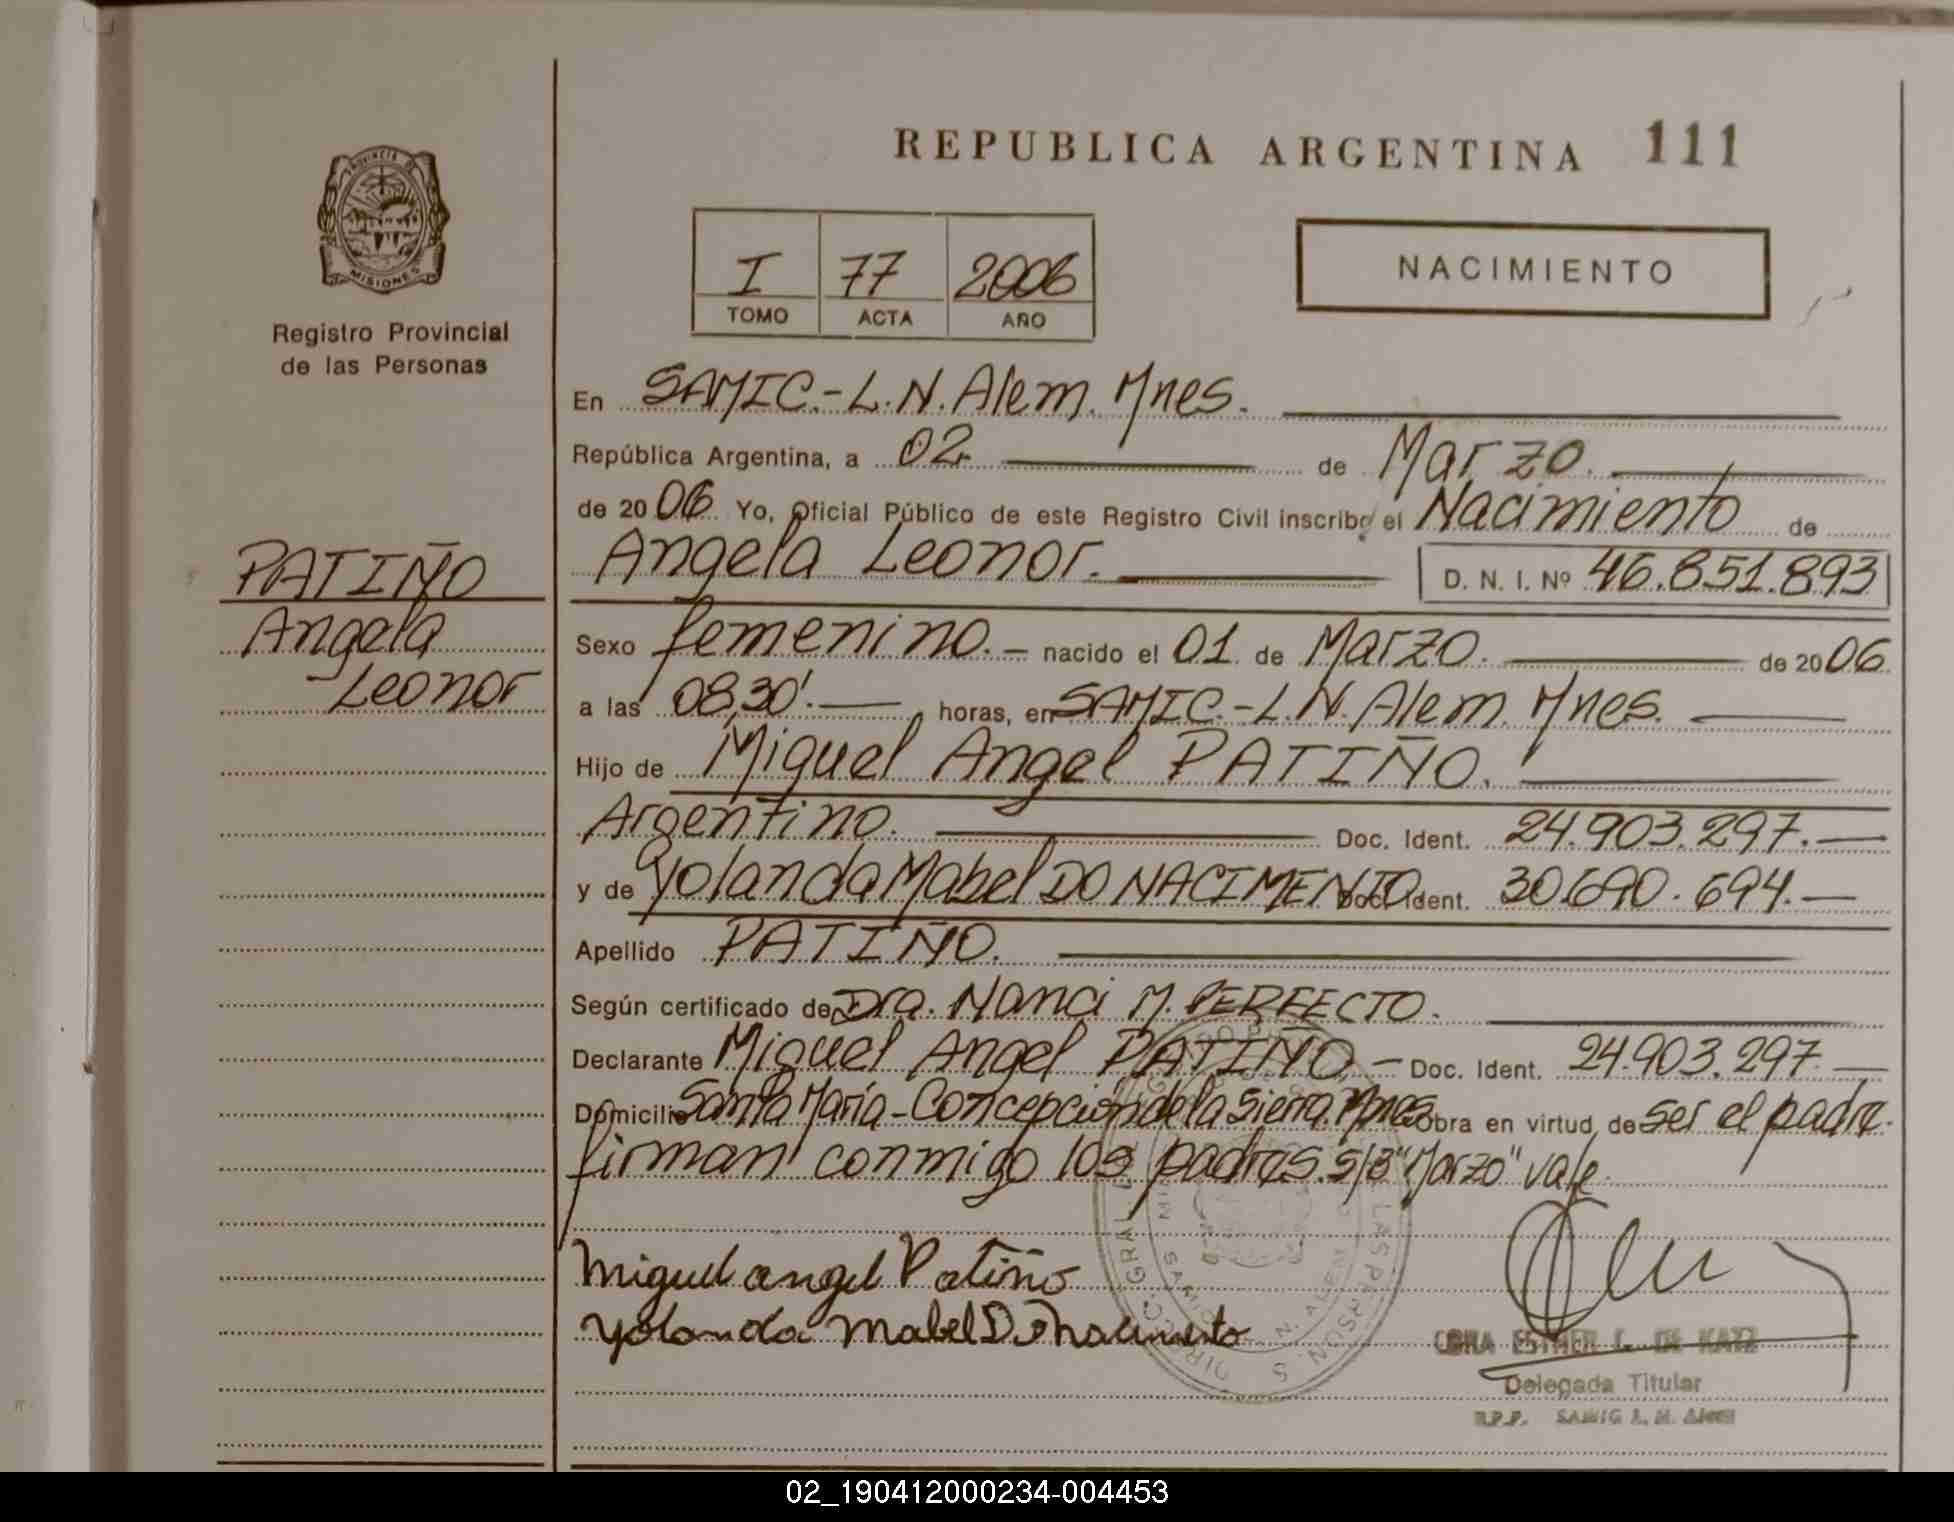 REPUBLICA ARGENTINA 111
PROVINCIA DE
MISIONES
Registro Provincial
de las Personas
I 77 2006
TOMO ACTA AÑO
NACIMIENTO
En SAMIC.-L.N. Alem. Mnes.
República Argentina, a 02. de Marzo.
de 2006 Yo, Oficial Público de este Registro Civil inscribo el Nacimiento de
Angela Leonor. D. N. I. Nº 46.851.893
PATIÑO
Angela
Leonor
Sexo femenino.- nacido el 01 de Marzo. de 2006
a las 08,30'.- horas, en SAMIC.-L.N. Alem. Mnes.
Hijo de Miguel Angel PATIÑO.
Argentino. Doc. Ident. 24.903.297.-
y de Yolanda Mabel DO NACIMENTO Doc. Ident. 30.690.694.-
Apellido PATIÑO.
Según certificado de Dra. Nanci M. PERFECTO.
Declarante Miguel Angel PATIÑO.- Doc. Ident. 24.903.297.-
Domicilio Santa María-Concepción de la Sierra. Mnes. Obra en virtud de ser el padre.
firman conmigo los padres. s/b "Marzo" vale.
Miguel angel Patiño
Yolanda Mabel Do nacimento
ESTHER DE KATZ
Delegada Titular
R.P.P. SAMIC L. N. Alem
02_190412000234-004453